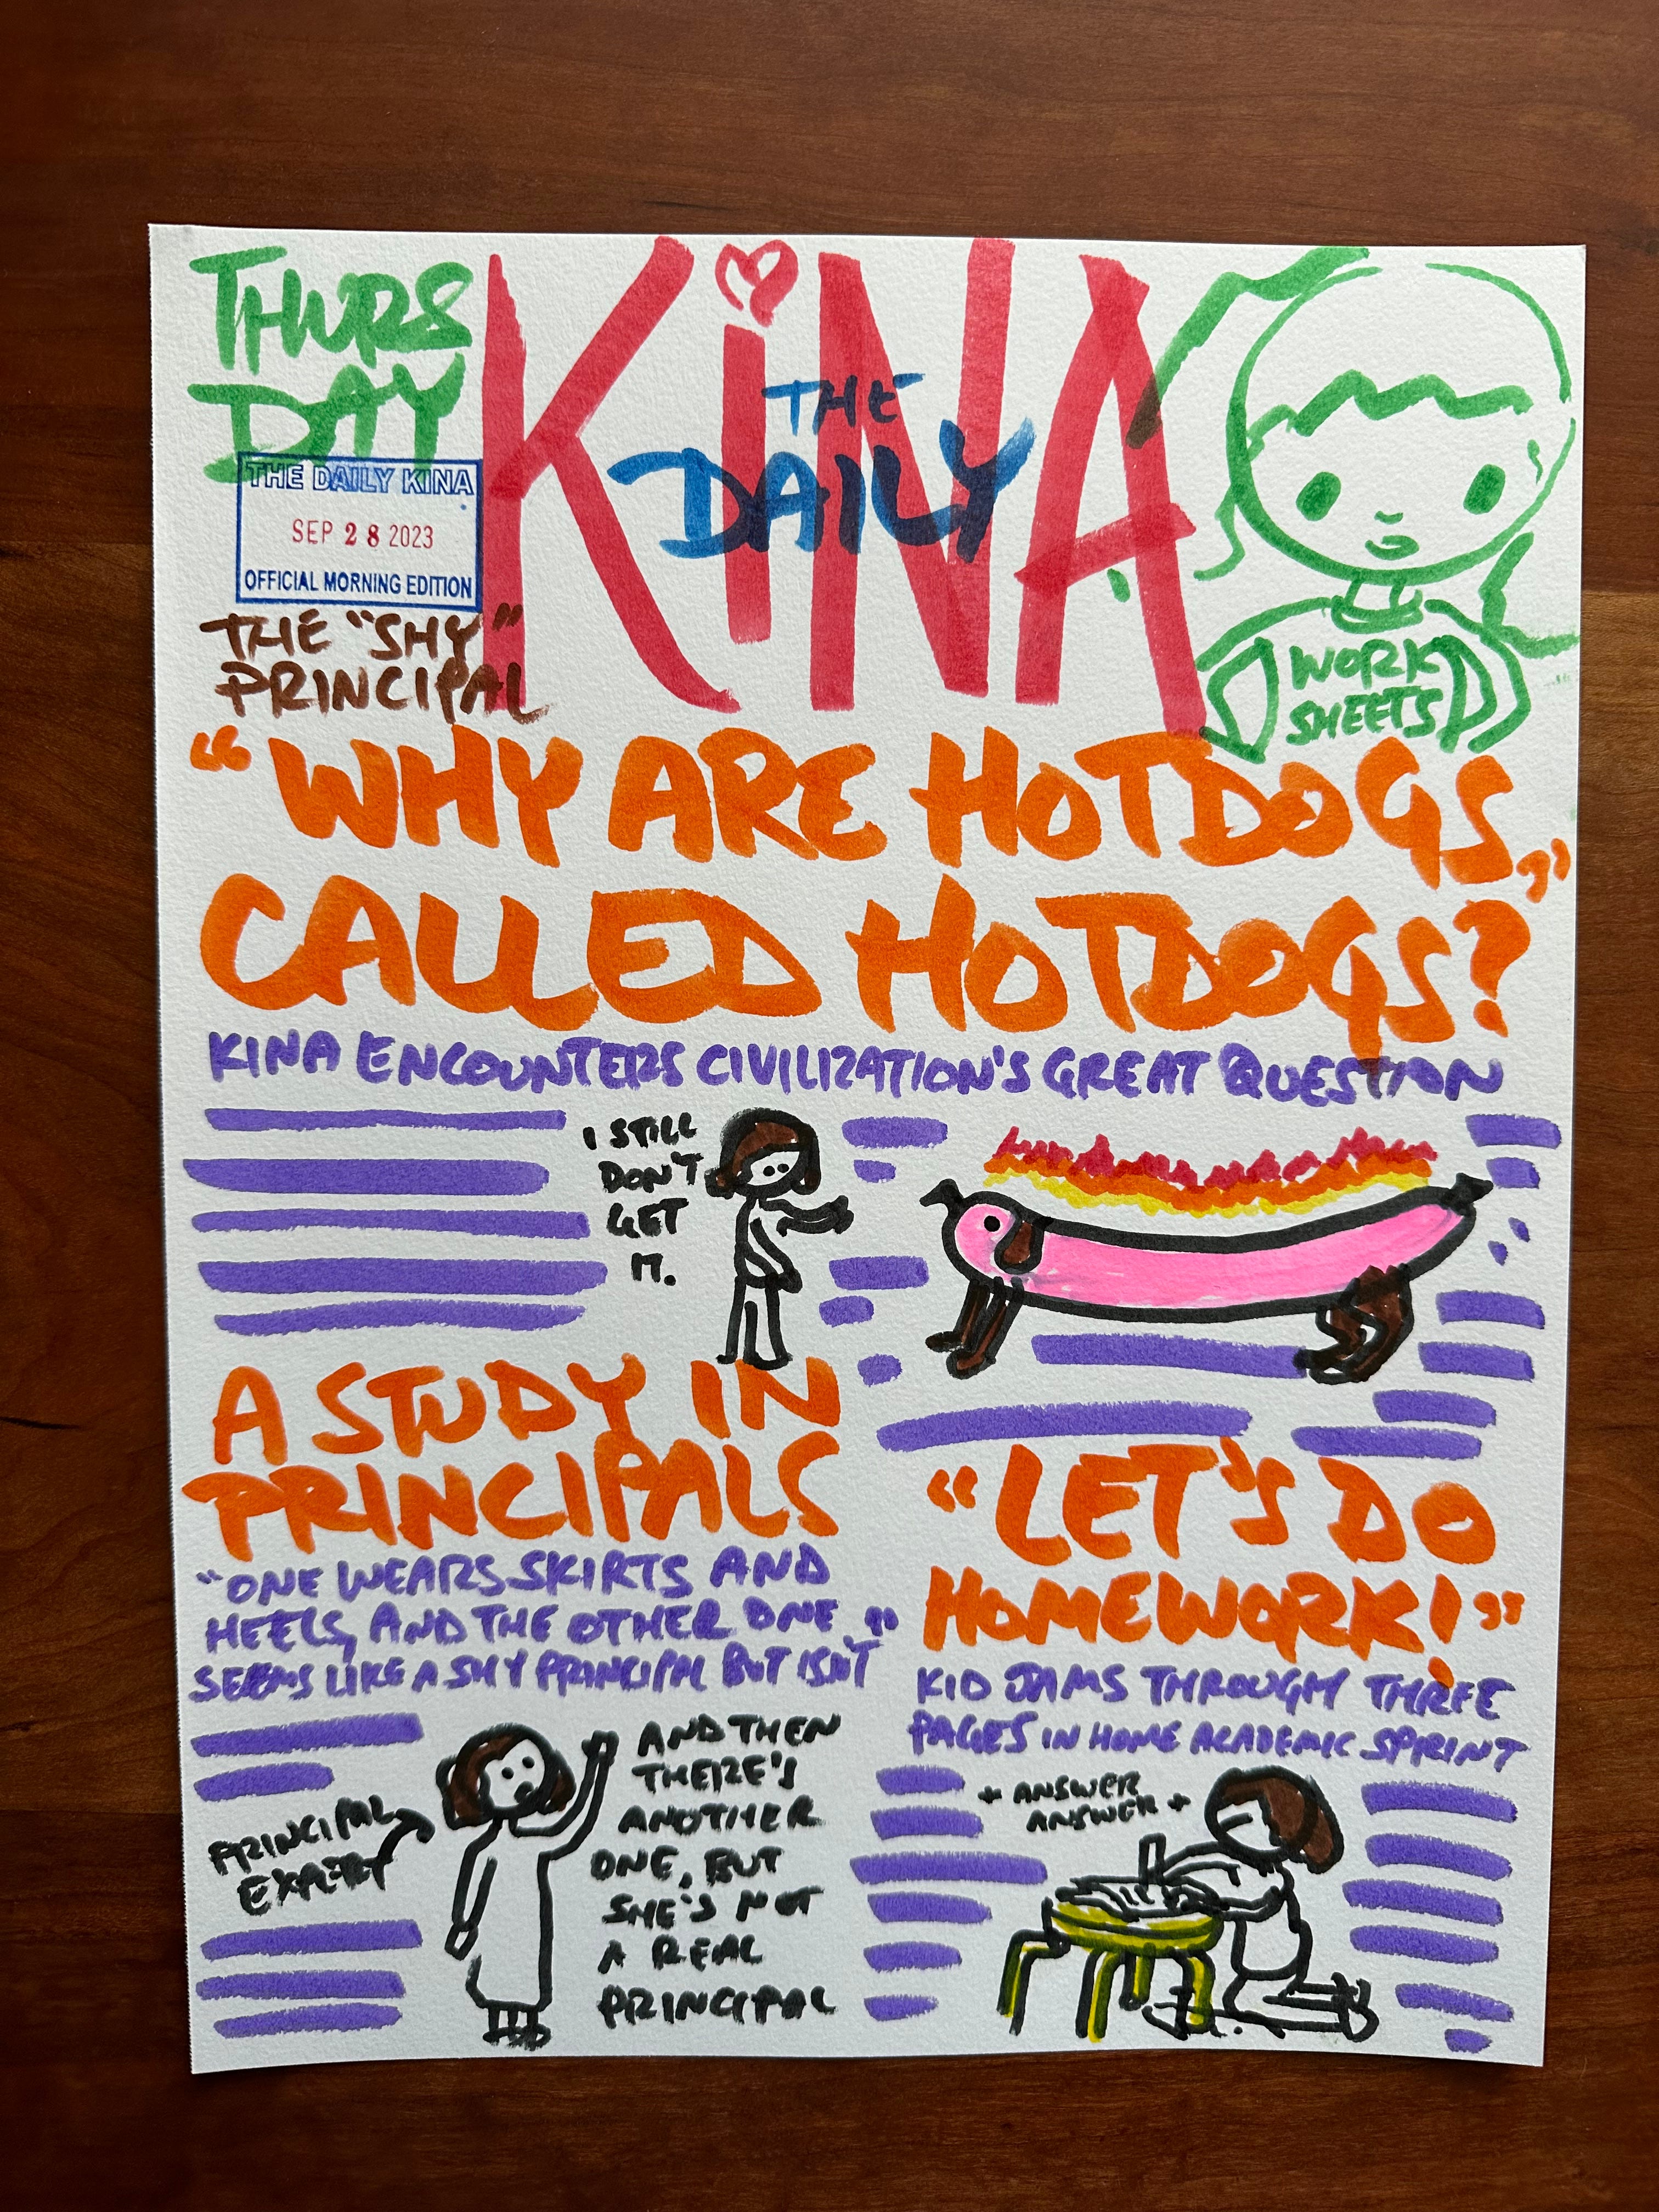 THURS
DAY
KiNA
THE
DAILY
THE DAILY KINA
SEP 28 2023
OFFICIAL MORNING EDITION
THE "SHY"
PRINCIPAL
WORK
SHEETS
"WHY ARE HOTDOGS
CALLED HOTDOGS?"
KINA ENCOUNTERS CIVILIZATION'S GREAT QUESTION
I STILL
DON'T
GET
IT.
A STUDY IN
PRINCIPALS
"ONE WEARS SKIRTS AND
HEELS, AND THE OTHER ONE
SEEMS LIKE A SHY PRINCIPAL BUT ISN'T"
PRINCIPAL
EXPERT
AND THEN
THERE'S
ANOTHER
ONE, BUT
SHE'S NOT
A REAL
PRINCIPAL
"LET'S DO
HOMEWORK!"
KID JAMS THROUGH THREE
PAGES IN HOME ACADEMIC SPRINT
+ ANSWER
ANSWER +